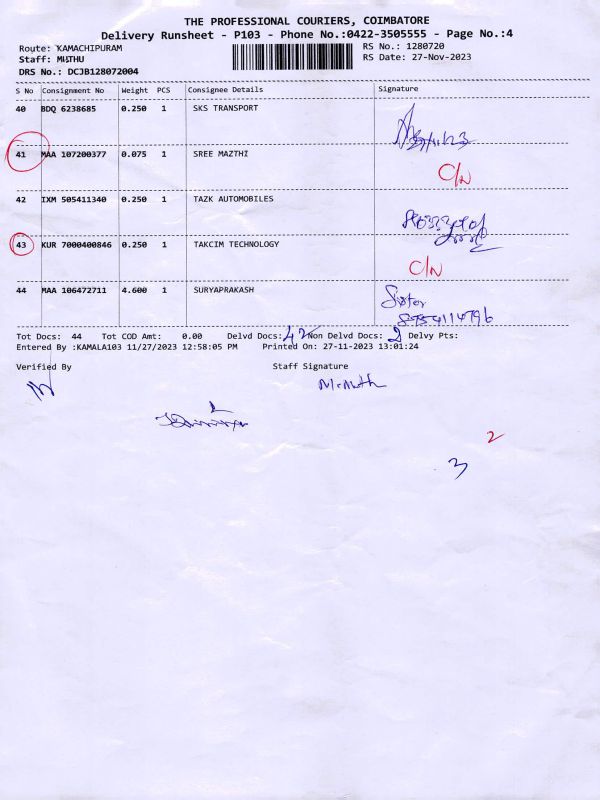 THE PROFESSIONAL COURIERS, COIMBATORE
Delivery Runsheet - P103 - Phone No.:0422-3505555 - Page No.:4
Route: KAMACHIPURAM RS No.: 1280720
Staff: MUTHU RS Date: 27-Nov-2023
DRS No.: DCJB128072004
S No Consignment No Weight PCS Consignee Details Signature
40 BDQ 6238685 0.250 1 SKS TRANSPORT
41 MAA 107200377 0.075 1 SREE MAZTHI
C/N
42 IXM 505411340 0.250 1 TAZK AUTOMOBILES
43 KUR 7000400846 0.250 1 TAKCIM TECHNOLOGY
C/N
44 MAA 106472711 4.600 1 SURYAPRAKASH Sister
8754114796
Tot Docs: 44 Tot COD Amt: 0.00 Delvd Docs: 42 Non Delvd Docs: 2 Delvy Pts:
Entered By :KAMALA103 11/27/2023 12:58:05 PM Printed On: 27-11-2023 13:01:24
Verified By Staff Signature
2
3